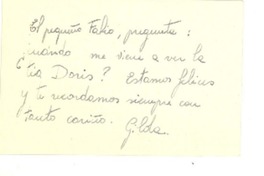 El pequeño Fabio, pregunta:
cuando me viene a ver la
tía Doris? Estamos felices
y te recordamos siempre con
tanto cariño. Gilda.